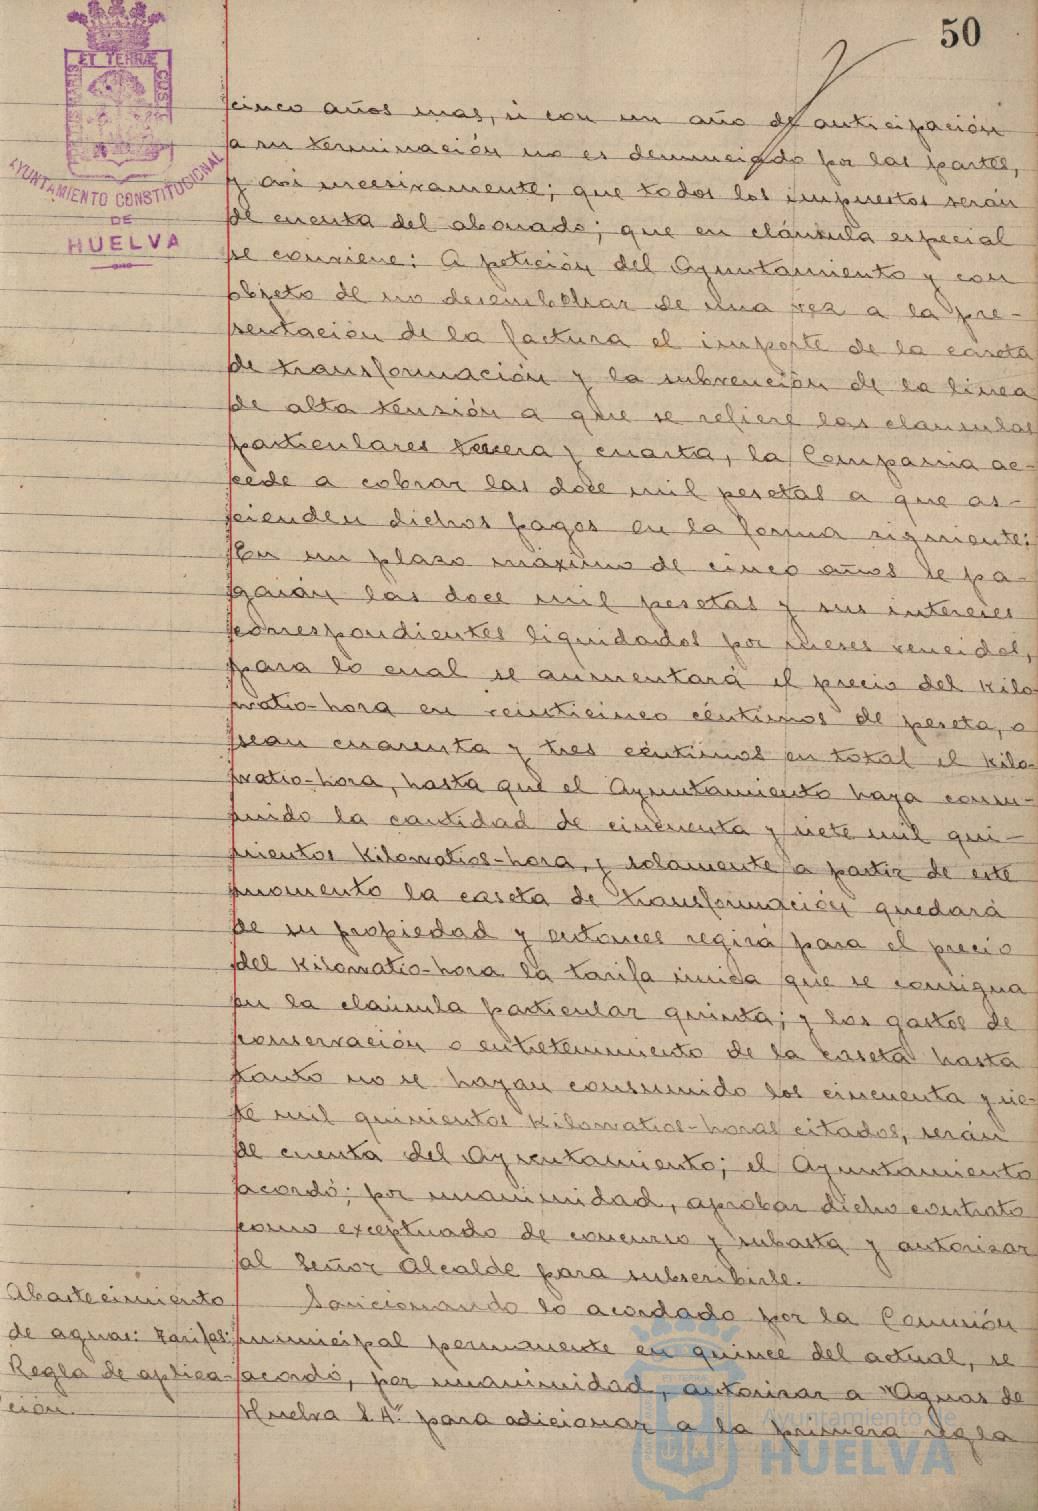 50
ET TERRÆ
AYUNTAMIENTO CONSTITUCIONAL
DE
HUELVA
cinco años mas, si con un año de anticipación
a su terminación no es denunciado por las partes,
y asi sucesivamente; que todos los impuestos serán
de cuenta del abonado; que en cláusula especial
se conviene: A petición del Ayuntamiento y con
objeto de no desembolsar de una vez a la pre-
sentación de la factura el importe de la caseta
de transformación y la subvención de la linea
de alta tensión a que se refiere las clausulas
particulares tercera y cuarta, la Compañia ac-
cede a cobrar las doce mil pesetas a que as-
cienden dichos pagos en la forma siguiente:
En un plazo máximo de cinco años se pa-
garán las doce mil pesetas y sus intereses
correspondientes liquidados por meses vencidos,
para lo cual se aumentará el precio del Kilo-
watio-hora en veinticinco céntimos de peseta, o
sean cuarenta y tres céntimos en total el Kilo-
watio-hora, hasta que el Ayuntamiento haya consu-
mido la cantidad de cincuenta y siete mil qui-
nientos Kilowatios-hora, y solamente a partir de este
momento la caseta de transformación quedará
de su propiedad y entonces regirá para el precio
del Kilowatio-hora la tarifa única que se consigna
en la claúsula particular quinta; y los gastos de
conservación o entretenimiento de la caseta hasta
tanto no se hayan consumido los cincuenta y sie-
te mil quinientos Kilowatios-horas citados, serán
de cuenta del Ayuntamiento; el Ayuntamiento
acordó; por unanimidad, aprobar dicho contrato
como exceptuado de concurso y subasta y autorizar
al Señor Alcalde para subscribirle.
Abastecimiento
de aguas: Tarifas:
Regla de aplica-
ción.
Sancionando lo acordado por la Comisión
municipal permanente en quince del actual, se
acordó, por unanimidad, autorizar a "Aguas de
Huelva S.A." para adicionar a la primera regla
Ayuntamiento de
HUELVA